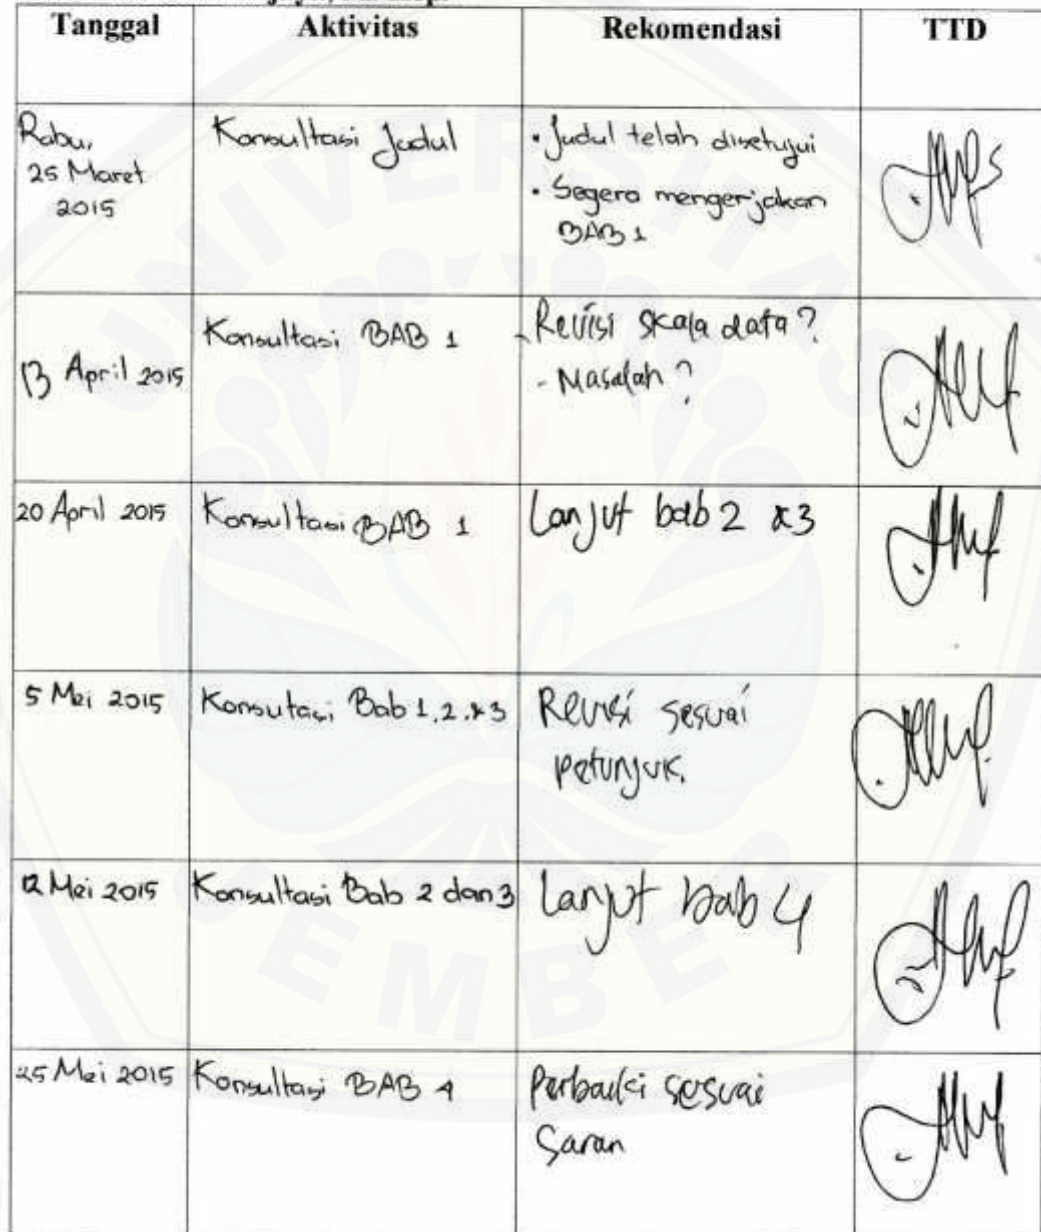 Tanggal Aktivitas Rekomendasi TTD
Rabu, Konsultasi Judul • Judul telah disetujui
25 Maret • Segera mengerjakan
2015 BAB 1
13 April 2015 Konsultasi BAB 1 - Revisi skala data?
- Masalah?
20 April 2015 Konsultasi BAB 1 Lanjut bab 2 & 3
5 Mei 2015 Konsutasi Bab 1, 2, & 3 Revisi sesuai
petunjuk.
12 Mei 2015 Konsultasi Bab 2 dan 3 Lanjut bab 4
25 Mei 2015 Konsultasi BAB 4 Perbaiki sesuai
Saran
UNIVERSITAS
JEMBER